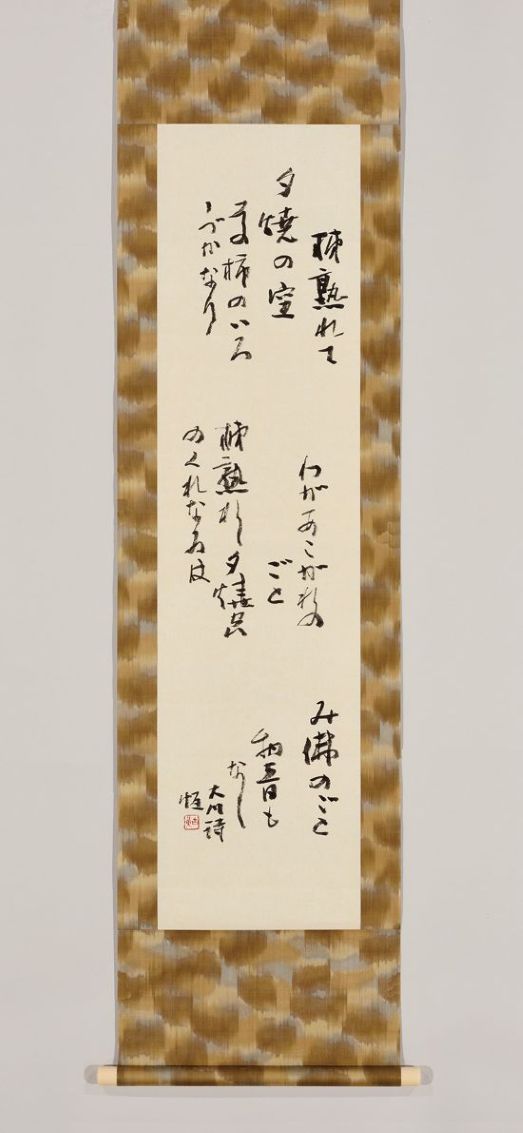 柿熟れて
夕焼の空
柿のいろ
しづかなり
わがあこがれの
ごと
柿熟れし夕焼
のくれなゐは
み佛のごと
物音も
なし
大川詩